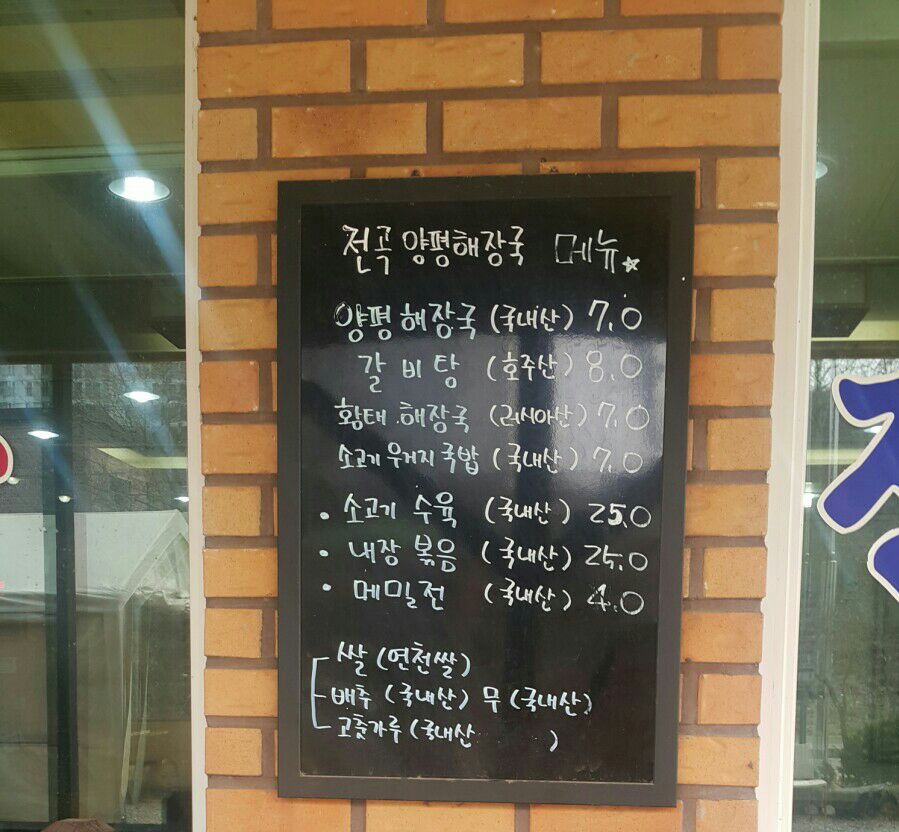 전곡 양평해장국 메뉴
양평해장국 (국내산) 7.0
갈비탕 (호주산) 8.0
황태 해장국 (러시아산) 7.0
소고기 우거지국밥 (국내산) 7.0
• 소고기 수육 (국내산) 25.0
• 내장 볶음 (국내산) 25.0
• 메밀전 (국내산) 4.0
쌀 (연천쌀)
배추 (국내산) 무 (국내산)
고춧가루 (국내산 )